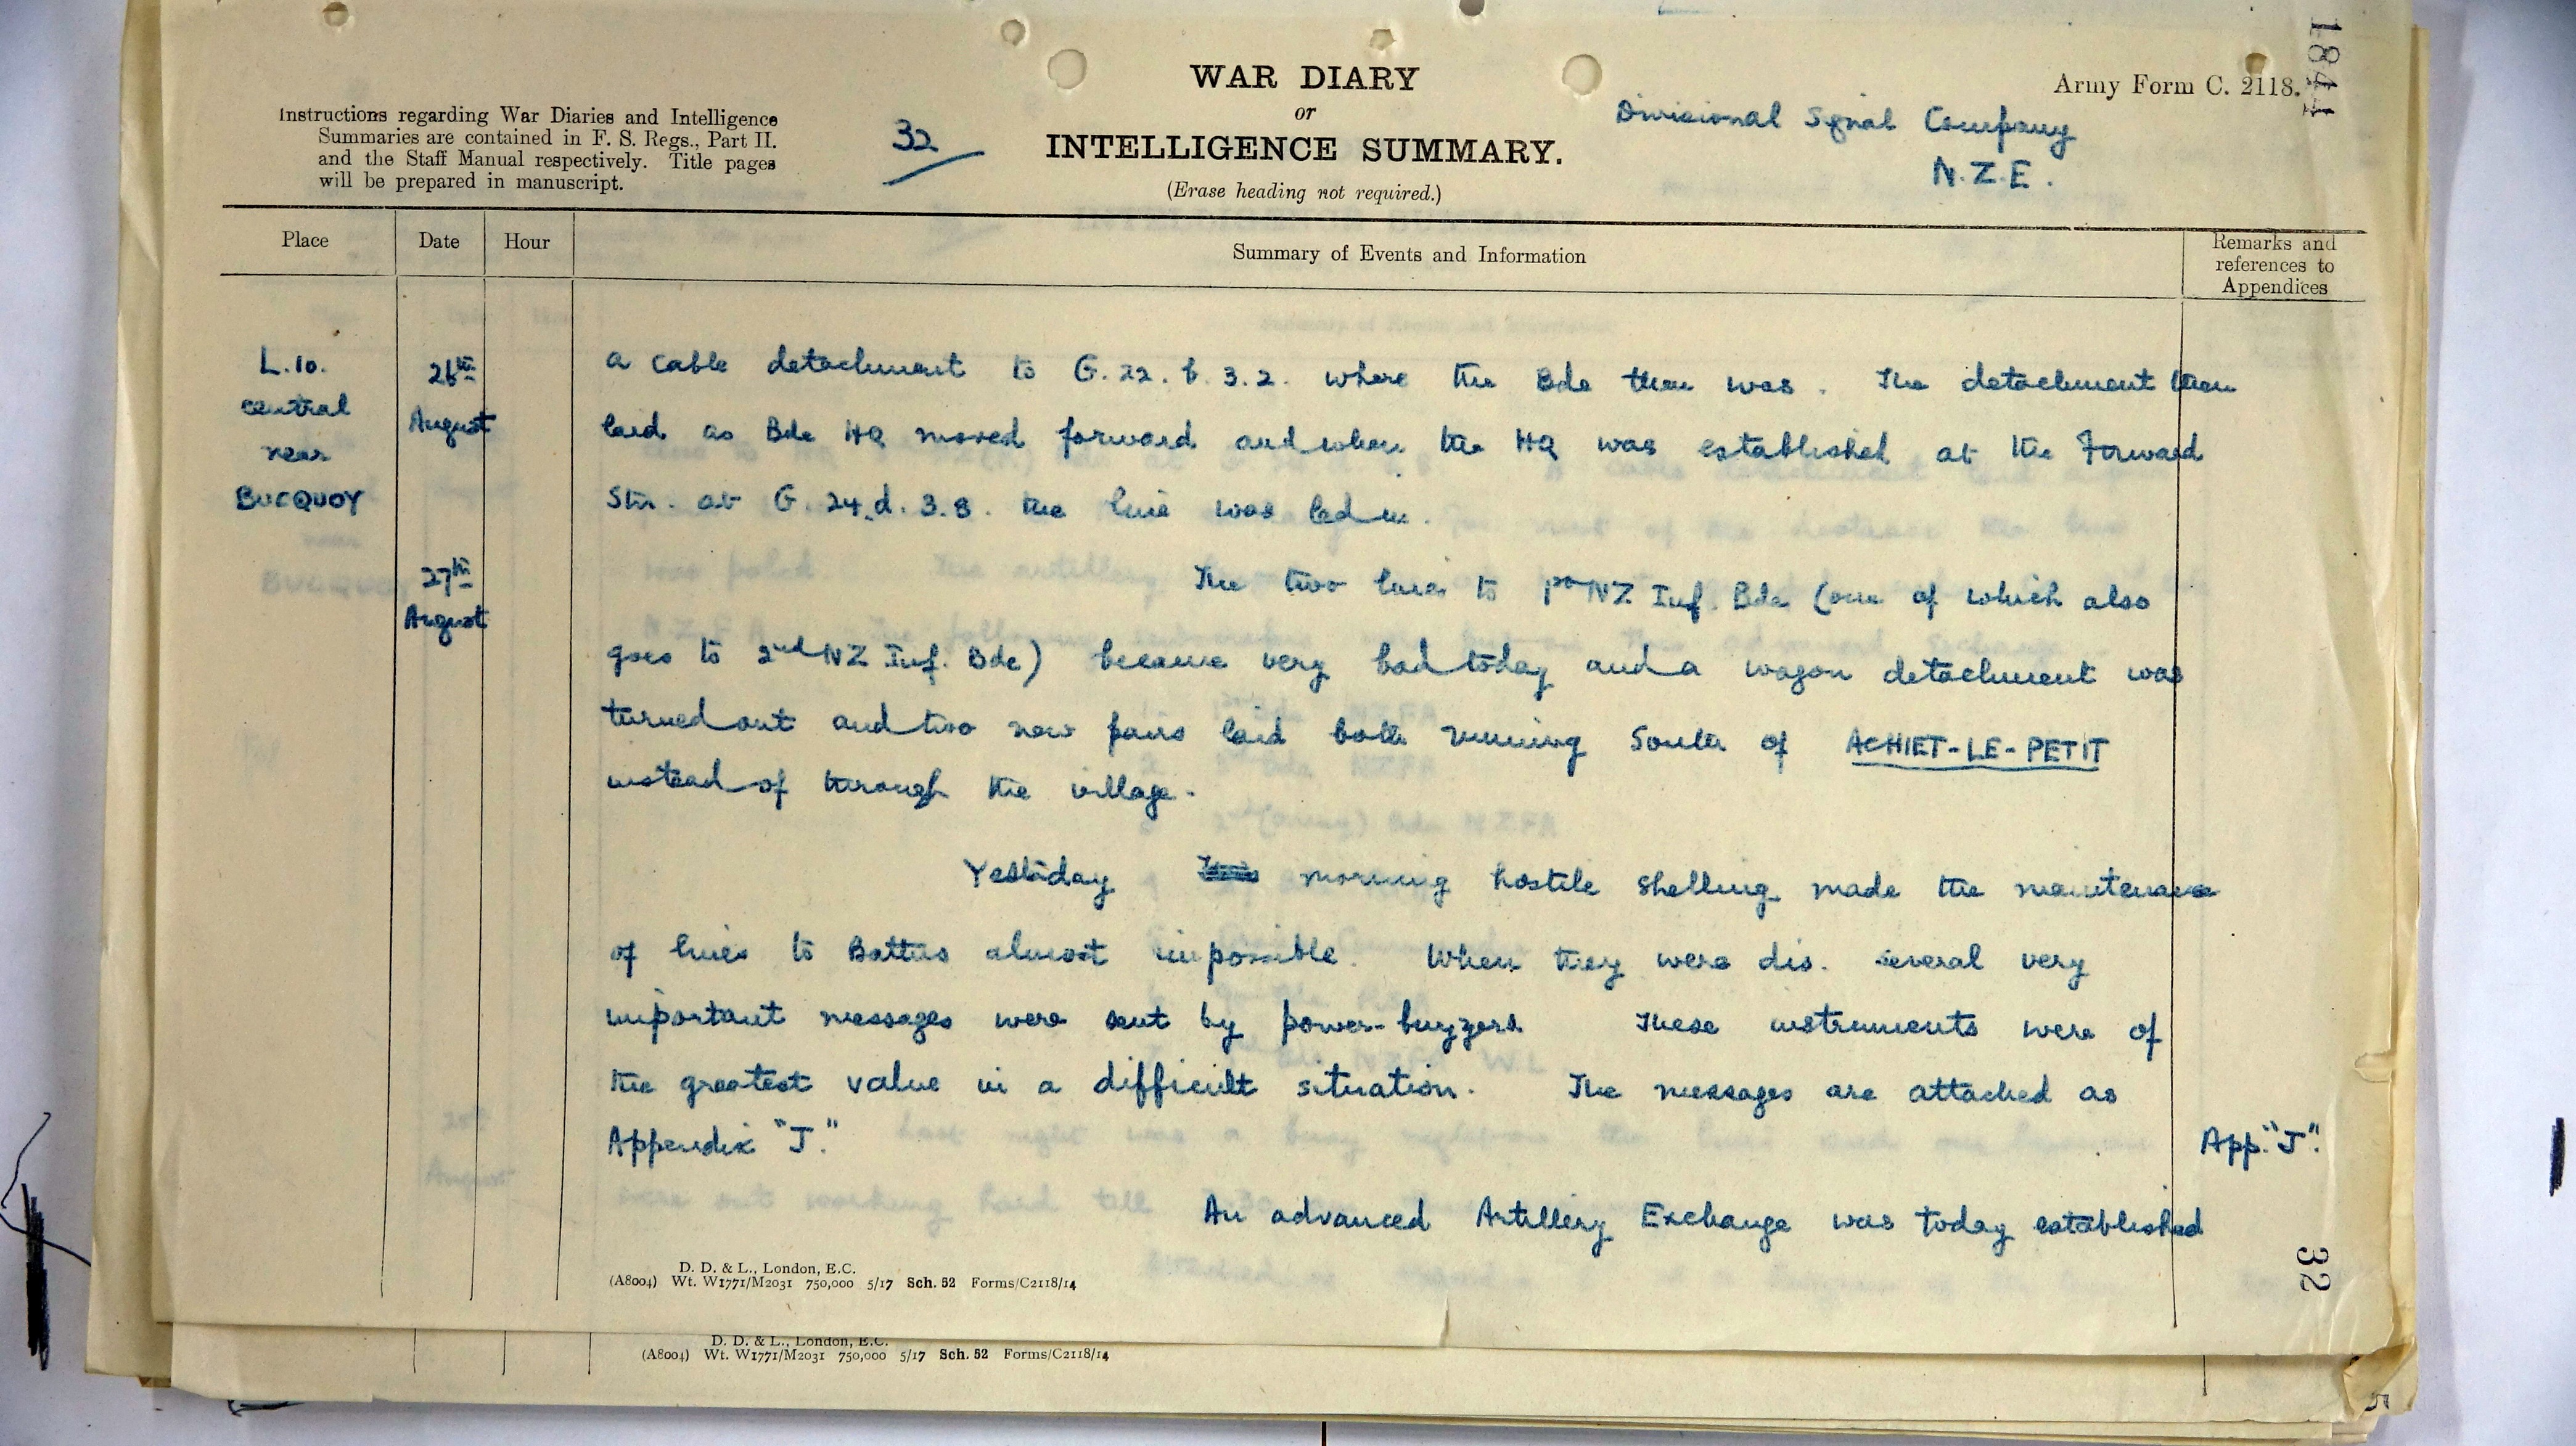 1844
WAR DIARY
or
INTELLIGENCE SUMMARY.
(Erase heading not required.)
Army Form C. 2118.
Instructions regarding War Diaries and Intelligence
Summaries are contained in F. S. Regs., Part II.
and the Staff Manual respectively. Title pages
will be prepared in manuscript.
32
Divisional Signal Company
N.Z.E.
Place
Date
Hour
Summary of Events and Information
Remarks and
references to
Appendices
L.10.
central
near
BUCQUOY
26th
August
a cable detachment to G.22.b.3.2. where the Bde then was. The detachment then
laid as Bde HQ moved forward and when the HQ was established at the Forward
Stn. at G.24.d.3.8. the line was led in.
27th
August
The two lines to 1st NZ Inf. Bde (one of which also
goes to 2nd NZ Inf. Bde) became very bad today and a wagon detachment was
turned out and two new pairs laid both running South of ACHIET-LE-PETIT
instead of through the village.
Yesterday morning hostile shelling made the maintenance
of lines to Battns almost impossible. When they were dis. several very
important messages were sent by power-buzzers. These instruments were of
the greatest value in a difficult situation. The messages are attached as
Appendix "J."
App. "J".
An advanced Artillery Exchange was today established
32
D. D. & L., London, E.C.
(A8004) Wt. W1771/M2031 750,000 5/17 Sch. 52 Forms/C2118/14
D. D. & L., London, E.C.
(A8004) Wt. W1771/M2031 750,000 5/17 Sch. 52 Forms/C2118/14